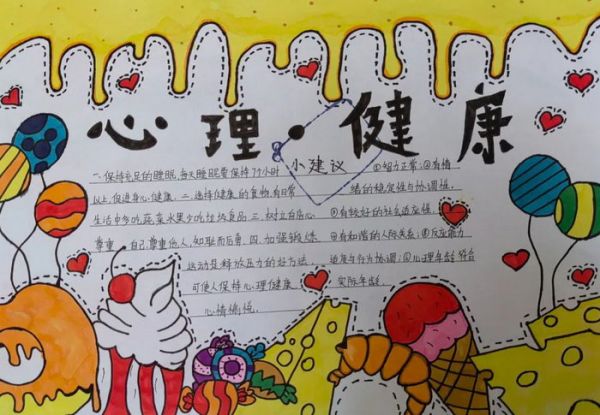 心理·健康
小建议
一.保持充足的睡眠,每天睡眠要保持7个小时
以上,促进身心健康.二.选择健康的食物,在日常
生活中多吃蔬菜水果少吃垃圾食品.三.树立自信心
尊重自己,尊重他人,知耻而后勇.四.加强锻炼
运动是释放压力的好方法,
可使人保持心理健康
心情愉悦.
①智力正常;②有情
绪的稳定性与协调性;
③有较好的社会适应性;
④有和谐的人际关系;⑤反应能力
适度与行为协调;⑥心理年龄符合
实际年龄